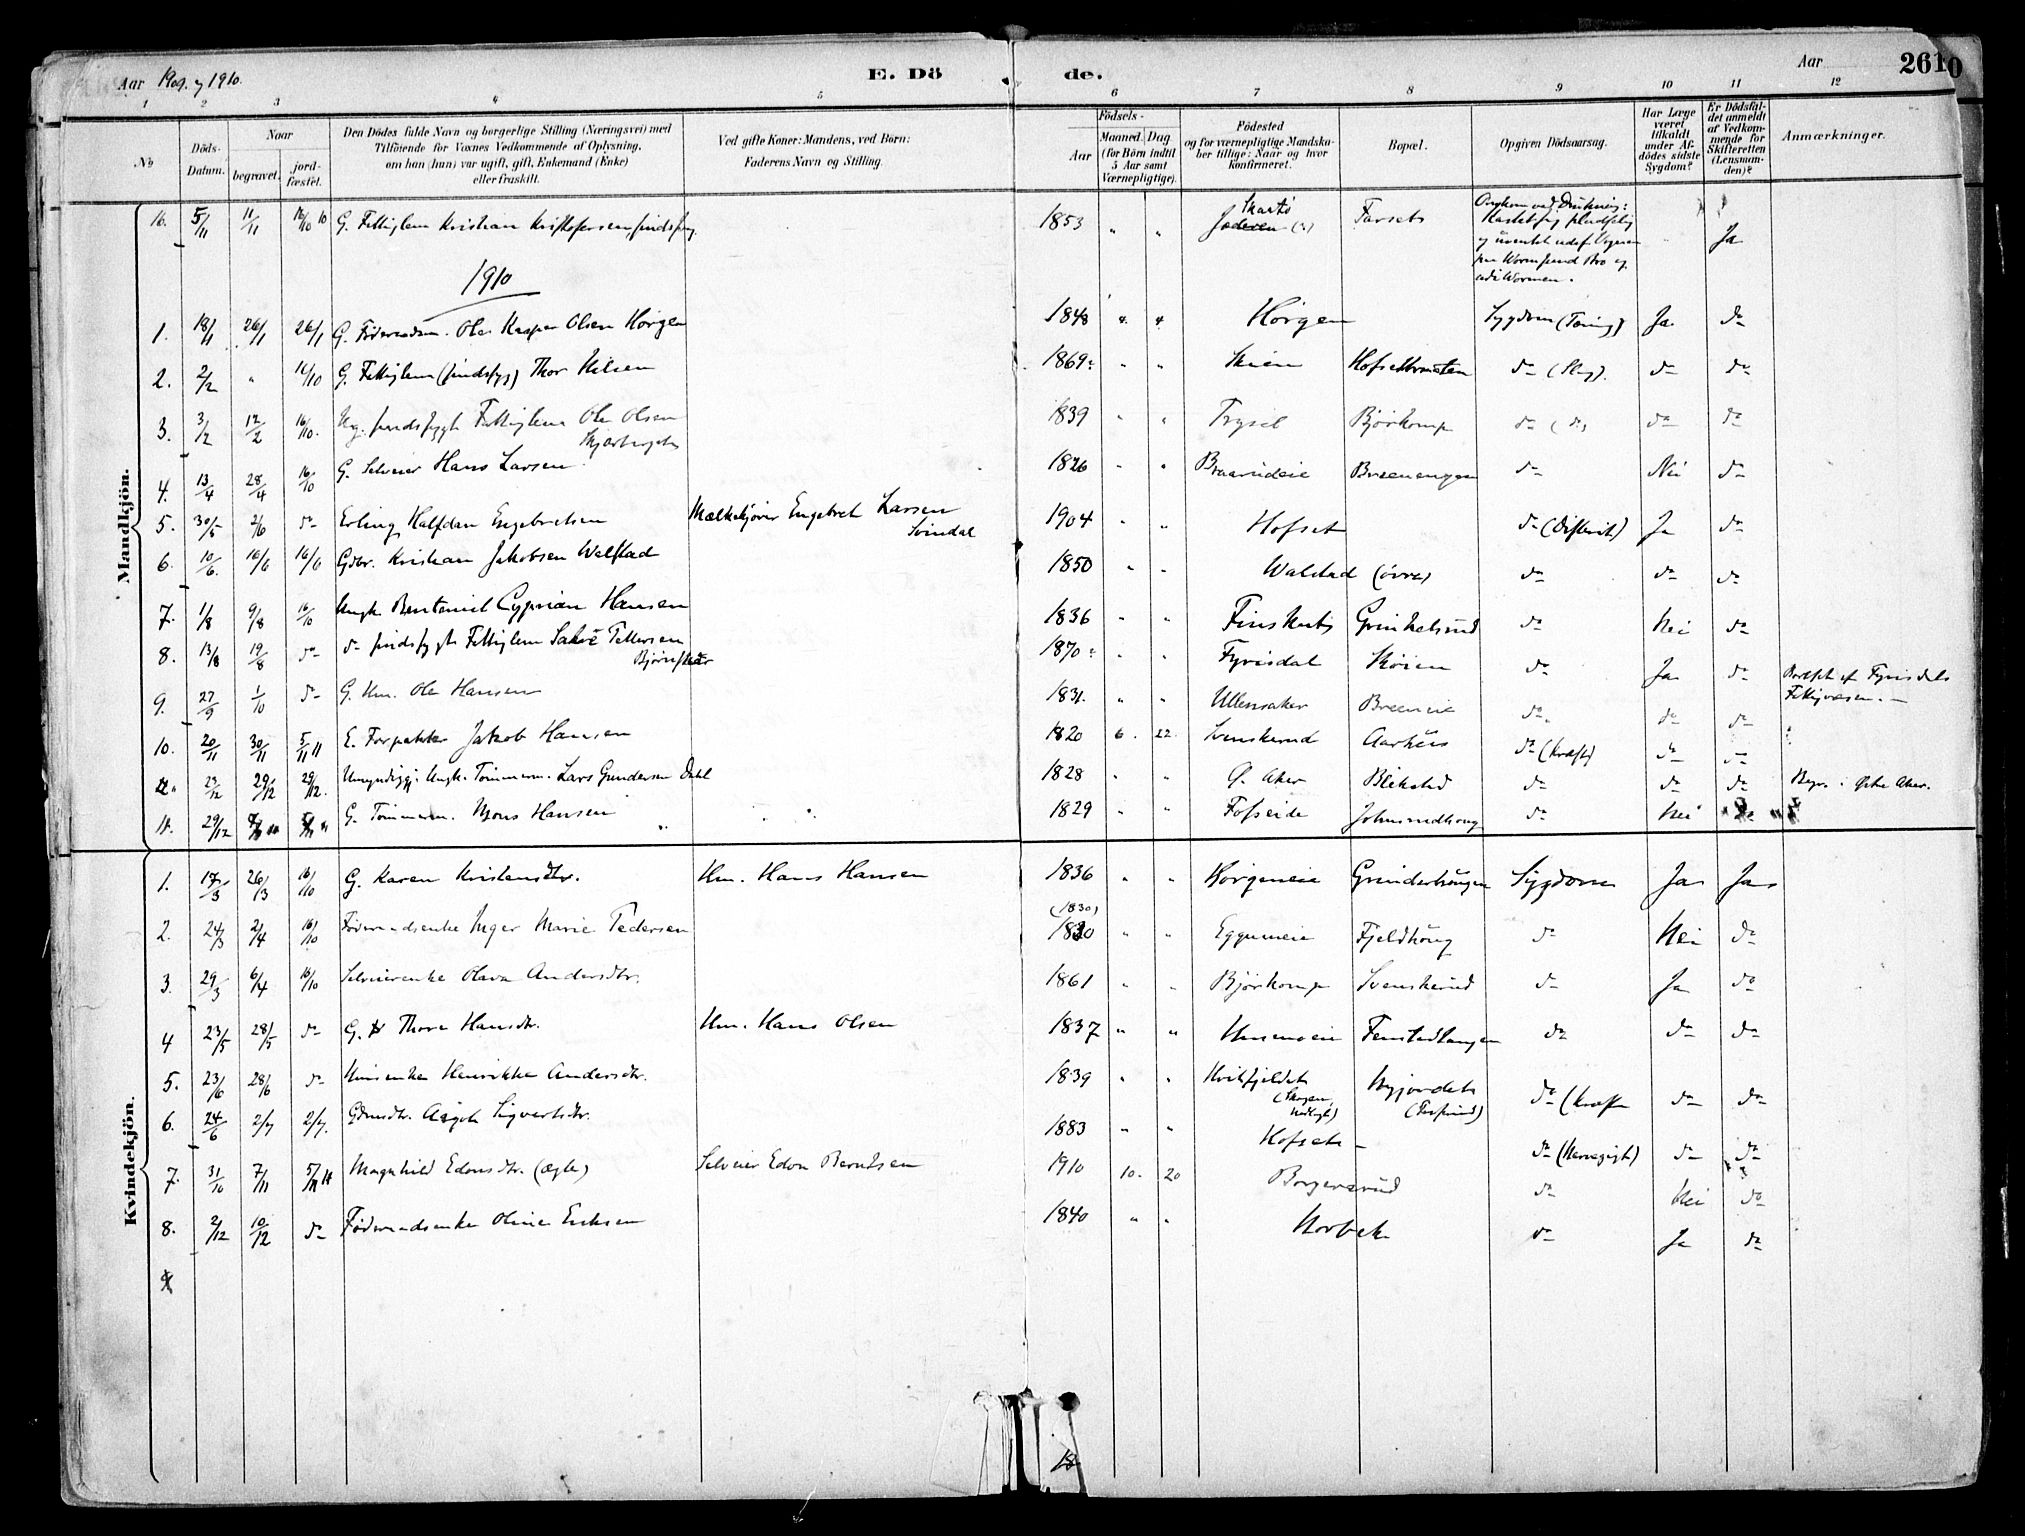 Aar 1909 og 1910.
E. Döde.
Aar
2610
1 2 3 4 5 6 7 8 9 10 11 12
No
Döds-Datum.
Naar
begravet.
jord-fæstet.
Den Dödes fulde Navn og borgerlige Stilling (Næringsvei) med
Tilföiende for Voxnes Vedkommende af Oplysning,
om han (hun) var ugift, gift, Enkemand (Enke)
eller fraskilt.
Ved gifte Koner: Mandens, ved Börn:
Faderens Navn og Stilling.
Födsels-
Aar
Maaned. Dag
(for Börn indtil
5 Aar samt
Værnepligtige).
Födested
og for værnepligtige Mandska-
ber tillige: Naar og hvor
konfirmeret.
Bopæl.
Opgiven Dödsaarsag.
Har Læge
været
tilkaldt
under Af-
dödes sidste
Sygdom?
Er Dödsfal-
det anmeldt
af Vedkom-
mende for
Skifteretten
(Lensman-
den)?
Anmærkninger.
Mandkjön.
16. 5/11 11/11 16/10 10 G. Fattiglem Kristian Kristofersen, sindssyg 1853 " " Skartö Jaderen (?) Farseth Omkom ved Drukning: Ja
Kastet sig pludselig
og uventet udaf Vognen
paa Wormsund Bro og
ud i Wormen.
1910
1. 18/1 26/1 26/1 G. Föderaadsm. Ole Kasper Olsen Horgen 1848 4. 4. Horgen Sygdom (Tæring) Ja do
2. 2/2 " 16/10 G. Fattiglem (sindssyg) Thor Nilsen 1869? " " Skien do (Slag). do do
3. 3/2 12/2 16/10. Ug. sindssygt Fattiglem Ole Olsen 1839 " " Trysil Bjørkomp do (do) do do
4. 13/4 28/4 16/10 G. Selveier Hans Larsen 1826 " " Braarudeie Breenengen do Nei do
5. 30/5 2/6 do Erling Halfdan Engebretsen Mælkekjører Engebret Larsen 1904 " " Hofset do (Difterit) Ja do
Svindal
6. 10/6. 16/6 16/6 Gdbr. Kristian Jakobsen Walstad 1850 " " Walstad (övre) do do do
7. 1/8 9/8 16/10 Ungk. Cyprian Hansen 1836 " " Grinkelsrud do Nei do
8. 13/8 19/8 do do sindssygt Fattiglem Pettersen 1870? " " Fyrisdal Sköien do Ja do Bortsat af Fyrisdals
Fattigvæsen.
9. 27/9 1/10 do G. Hm. Ole Hansen 1831. " " Ullensaker Breeneie do. do do
10. 20/11 30/11 5/11 11 E. Forpakter Jakob Hansen 1820 6. 22. Svenskerud Aarhuus do (Kræft) do do
23/12 29/12 29/12. Umyndiggj. Ungk. Tömmerm. Lars Gundersen Dahl 1828 " " Ø. Aker Blikstad do do do Begr. i Østre Aker.
11. 29/12 G. Tömmerm. Mons Hansen 1829 " " Fosseide Johnsrudhaug do Nei
Kvindekjön.
1. 17/3 26/3 16/10 G. Karen Kristensdtr. Hm. Hans Hansen 1836 " " Horgeneie Grinderhaugen Sygdom Ja Ja
2. 24/3 2/4 16/10 Föderaadsenke Inger Marie Pedersen (1830) 1820 " " Eggumeie Fjeldhaug do Nei do
3. 29/3 6/4 16/10 Selveierenke Olava Andersdtr. 1861 " " Bjørkomp Svenskerud do Ja do
4 23/5 28/5 do G. Thora Hansdtr. Hm. Hans Olsen 1837 " " Fenstadlangen do do do
5. 23/6 28/6 do Husmenke Henrikke Andersdtr. 1839 " " Hvitfjeldet Nygjordet do (Kræft) do do
6. 24/6 2/7 2/7. Gdmdtr. Aagot Sigvartsdtr. 1883 " " Hofseth do do do
7. 31/10 7/11 5/11 11 Magnhild Edvinsdtr. (ægte) Selveier Edvin Berntsen 1910 10. 20 Borgersrud do Nei do
8. 2/12 10/12 do Föderaadsenke Oline Eriksen 1840 " " Horbek do Ja do
18